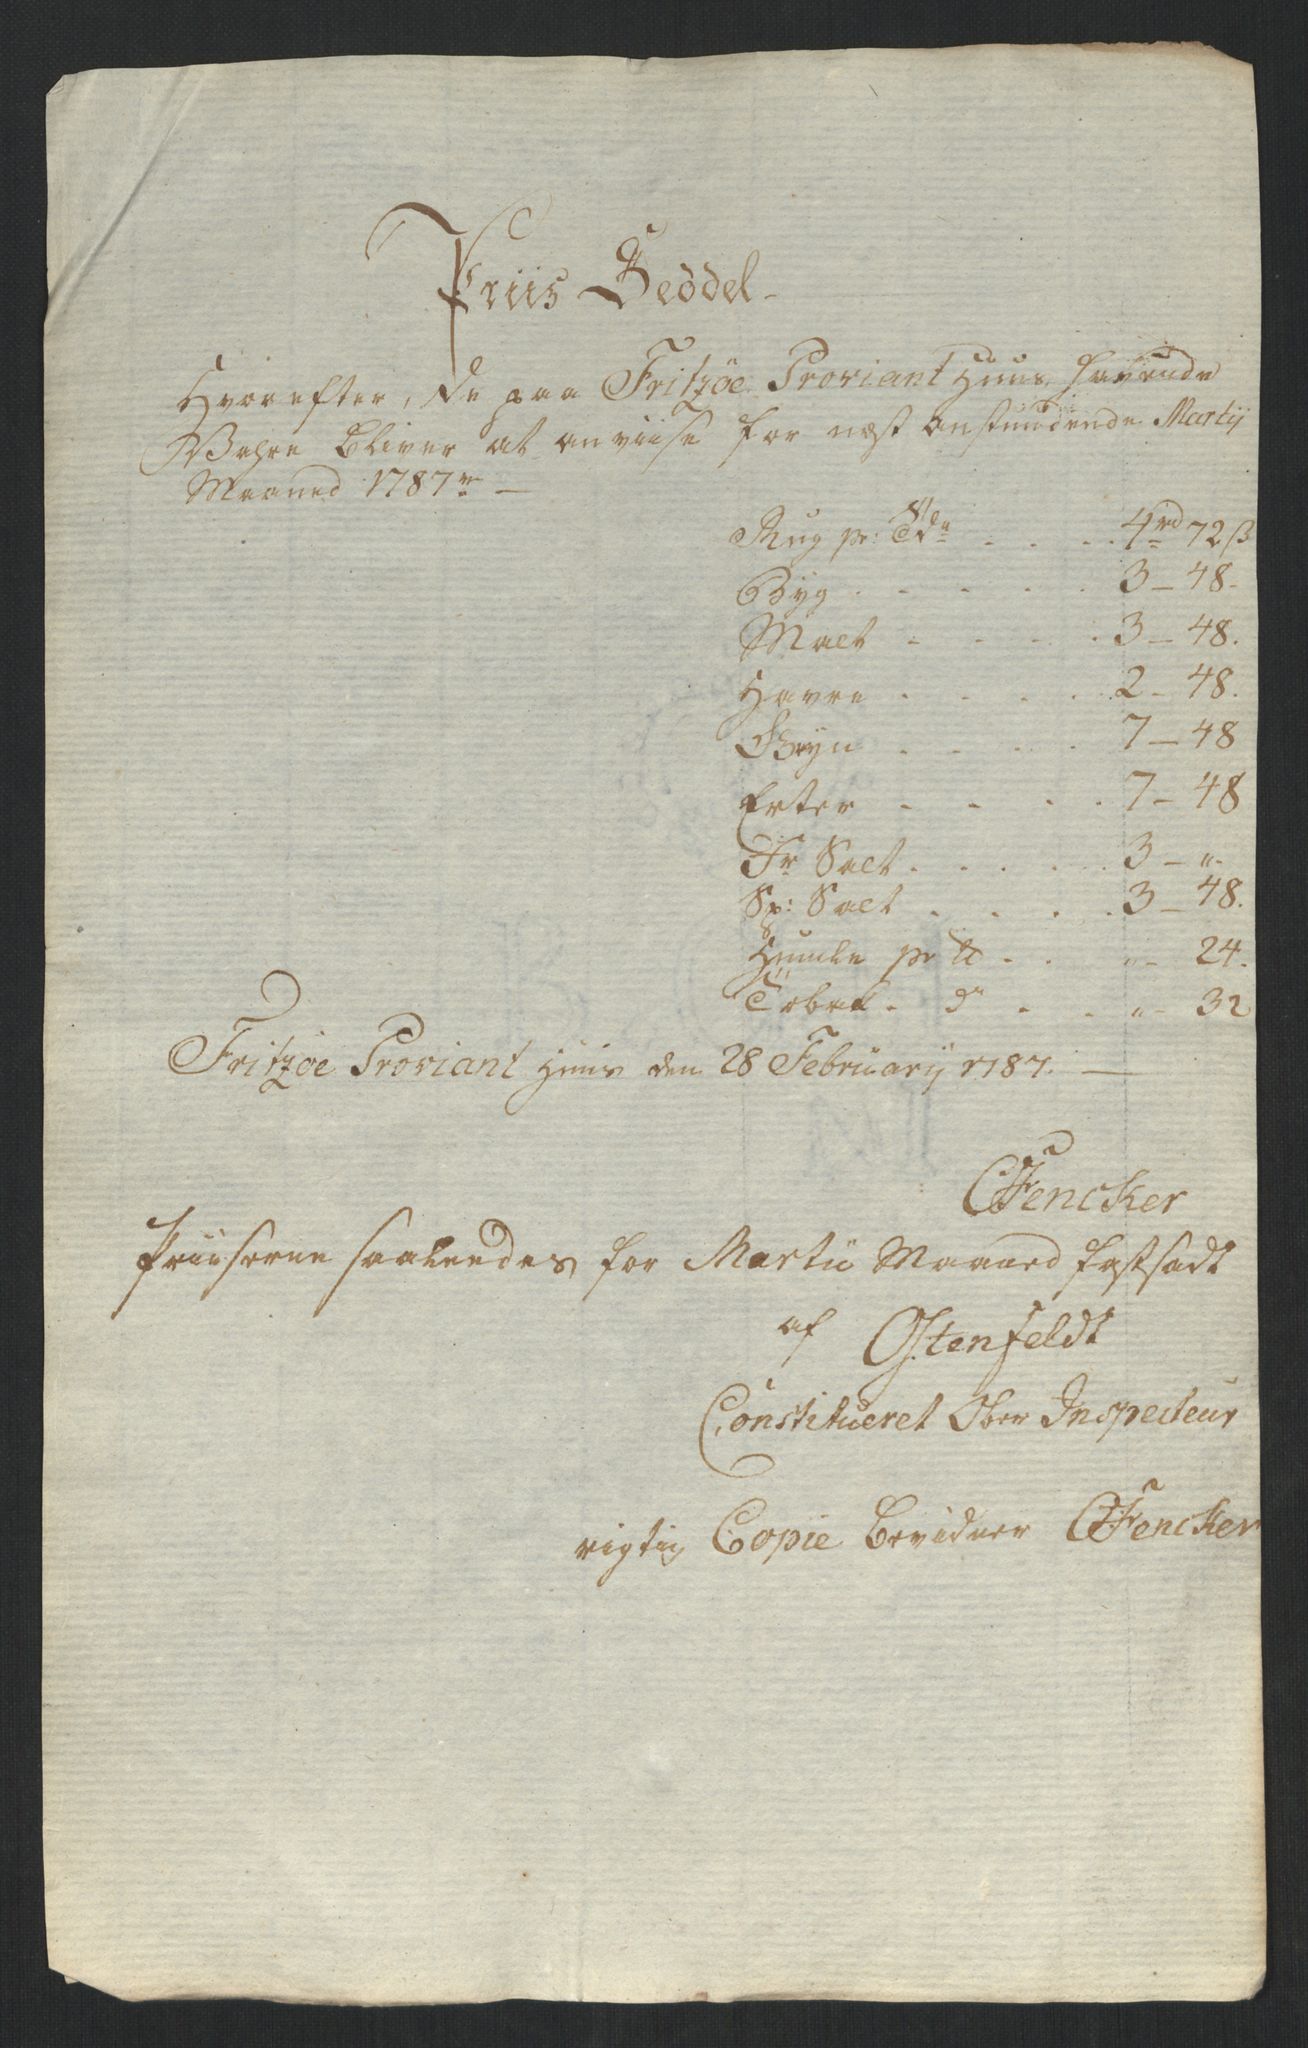 Priis Seddel
Hvorefter, de paa Fritzöe Proviant Huus havende
Vahre bliver at anviise for næst anstundende Martij
Maaned 1787 —
Rug pr: Tde . . . . 4rd 72ß
Byg . . . . . 3 — 48 -
Malt - - - . 3 — 48.
Havre . . . . 2 - 48.
Gryn . . . . 7 — 48
Erter - - . . 7 - 48
Fr Salt . . . . . 3 — "-
Sp: Salt . . . . 3 — 48.
Humle pr ℔ . . "- 24.
Tobak - do . . "- 32
Fritzöe Proviant Huus den 28 Februarij 1787. —
CFencker
Priiserne saaleedes for Martii Maaned fastsadt
af Ostenfeldt
Constitueret Ober Inspecteur
rigtig Copie bevidner CFencker